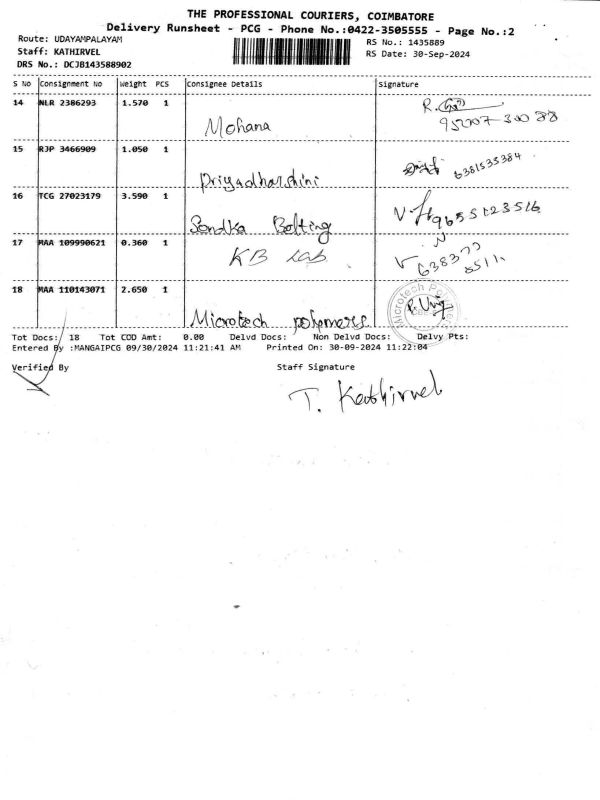 THE PROFESSIONAL COURIERS, COIMBATORE
Delivery Runsheet - PCG - Phone No.:0422-3505555 - Page No.:2
Route: UDAYAMPALAYAM
RS No.: 1435889
Staff: KATHIRVEL
RS Date: 30-Sep-2024
DRS No.: DCJB143588902
S No Consignment No Weight PCS Consignee Details Signature
14 NLR 2386293 1.570 1 Mohana R.
95007-30088
15 RJP 3466909 1.050 1 Priyadharshini 6381535384
16 TCG 27023179 3.590 1 Sondka Bolting 9655123516
17 MAA 109990621 0.360 1 KB Lab
18 MAA 110143071 2.650 1 Microtech polymers
Microtech Polymers
Tot Docs: 18 Tot COD Amt: 0.00 Delvd Docs: Non Delvd Docs: Delvy Pts:
Entered By :MANGAIPCG 09/30/2024 11:21:41 AM Printed On: 30-09-2024 11:22:04
Verified By Staff Signature
T. Kathirvel